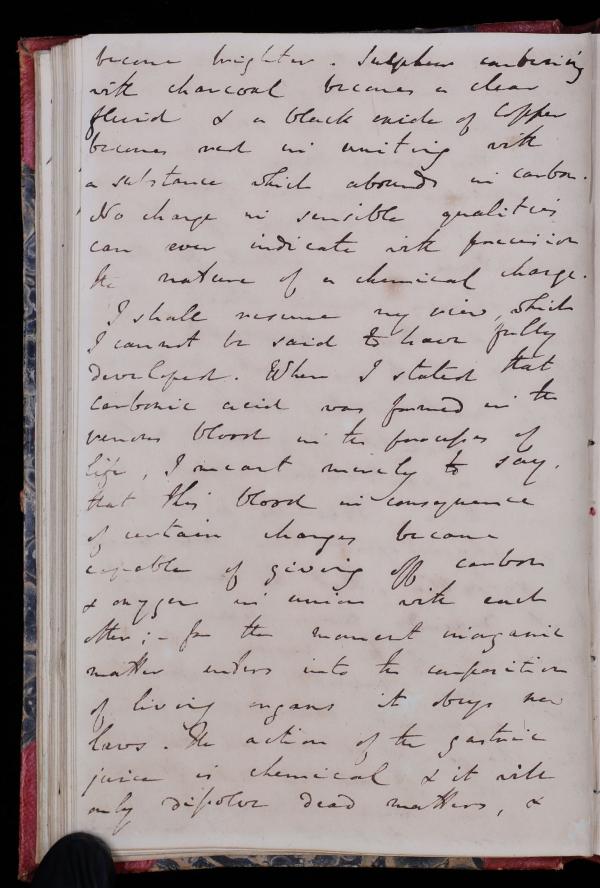 become brighter. Sulphur combining
with charcoal becomes a clear
fluid & a black oxide of Copper
becomes red in uniting with
a substance which abounds in carbon.
No change in sensible qualities
can ever indicate with precision
the nature of a chemical change.
I shall resume my view, which
I cannot be said to have fully
developed. When I stated that
carbonic acid was formed in the
venous blood in the processes of
life, I meant merely to say,
that this blood in consequence
of certain changes became
capable of giving off carbon
& oxygen in union with each
other; - for the moment inorganic
matter enters into the composition
of living organs it obeys new
laws. The action of the gastric
juice is chemical & it will
only dissolve dead matters, &